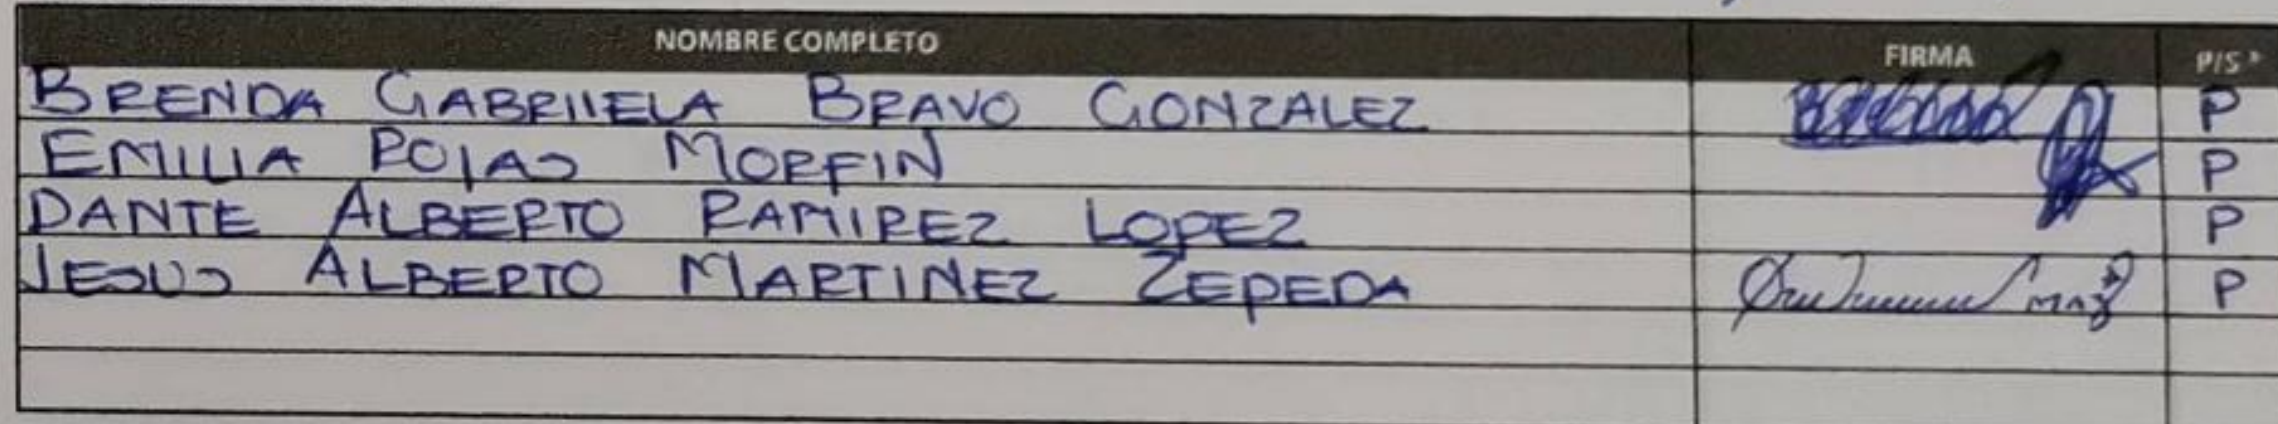 NOMBRE COMPLETO FIRMA P/S*
BRENDA GABRIIELA BRAVO GONZALEZ P
EMILIA ROJAS MORFIN P
DANTE ALBERTO RAMIREZ LOPEZ P
JESUS ALBERTO MARTINEZ ZEPEDA P